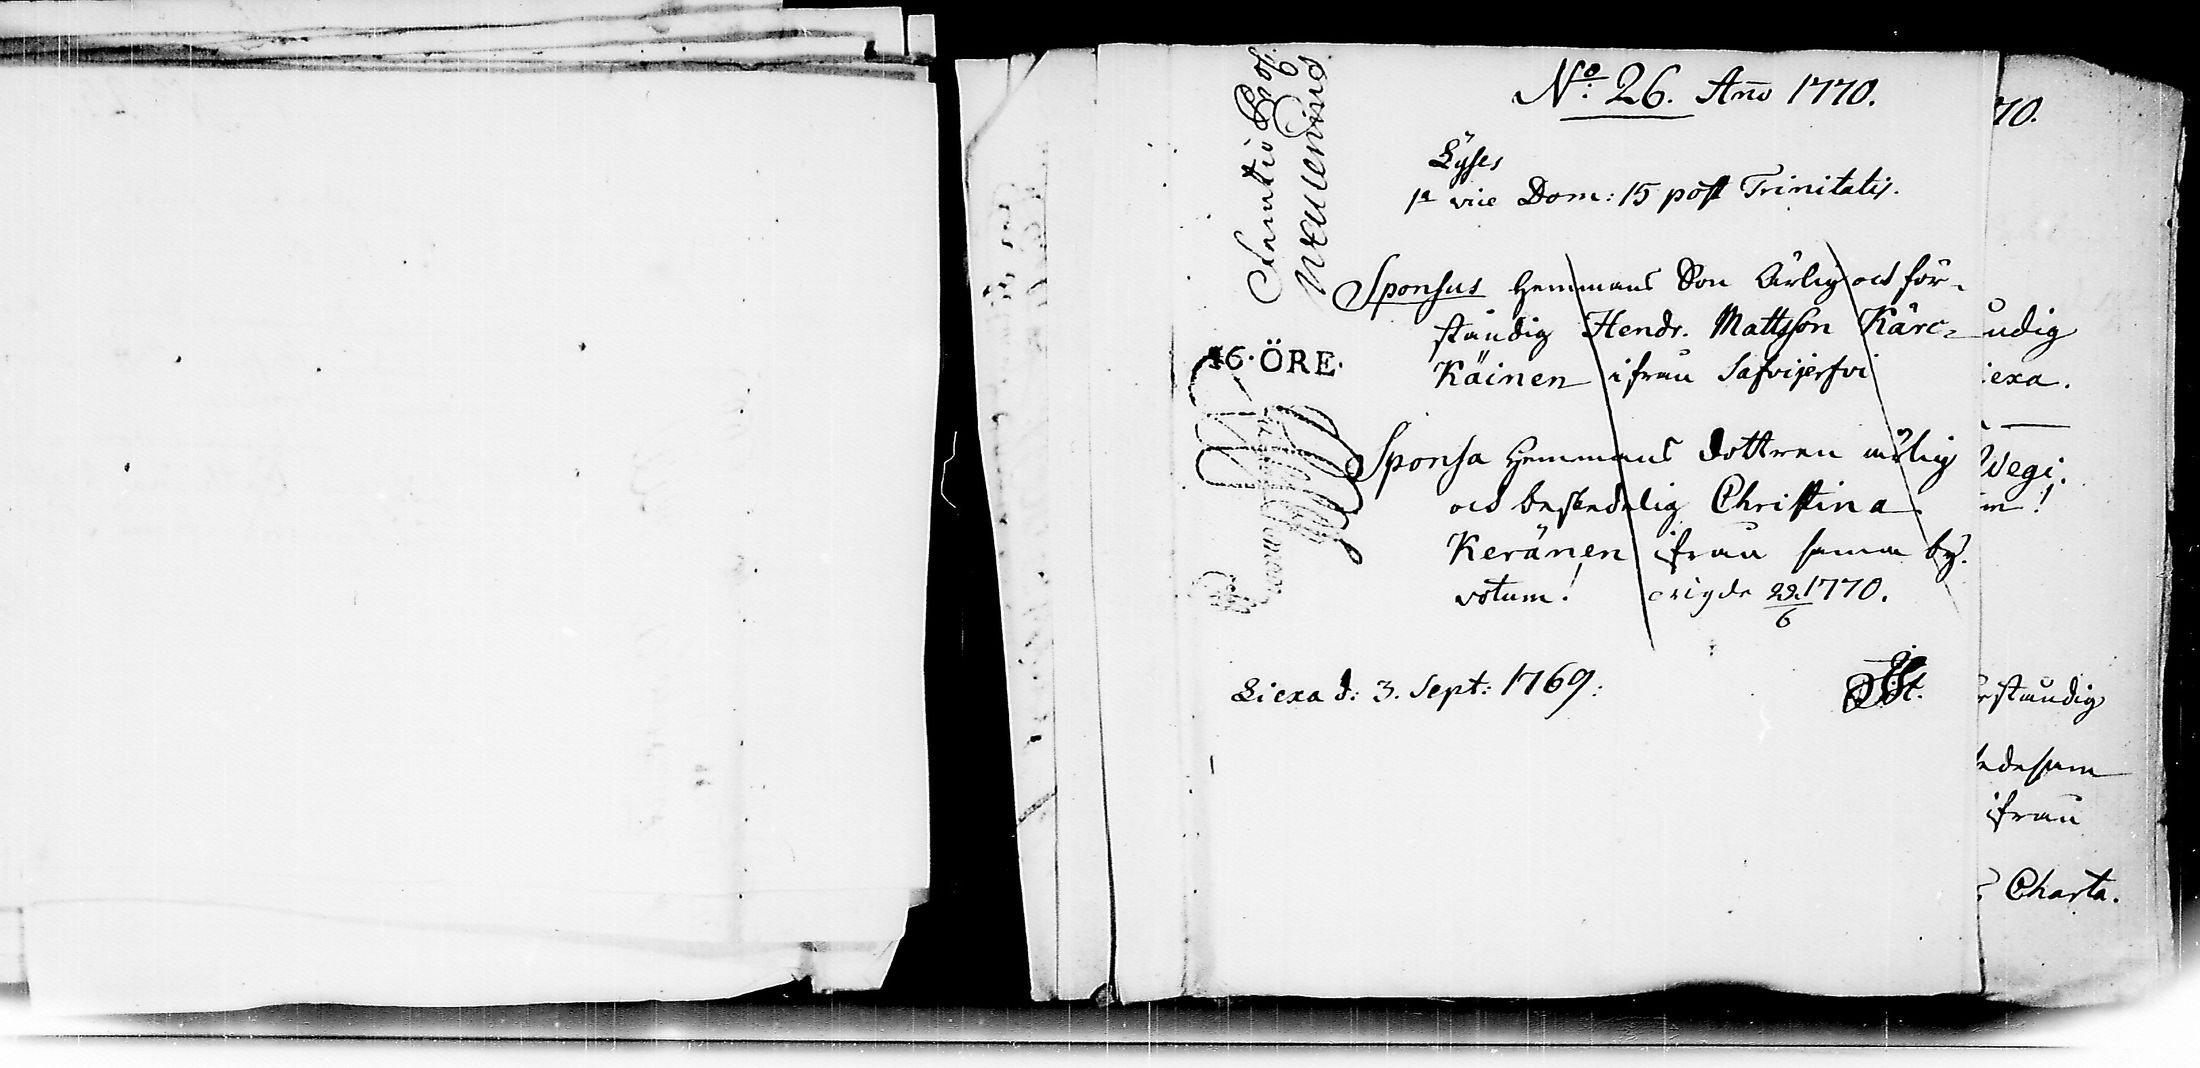 No: 26. Año 1770.
Lyses
1a vice Dom: 15 post Trinitatis.
Sponsus Hemmans Son Ärlig och för-
ståndig Hendr. Mattsson Kärc-
käinen ifrån Safvijerfvi
Sponsa Hemmans dottren ärlig
och beskedelig Christina
Keränen ifrån samma by.
votum! vigde 22/6 1770.
Liexa d: 3. Sept: 1769.
16·ÖRE·
70.
udig
iexa.
Wegi.
m!
rståndig
edesam
ifrån
Charta.